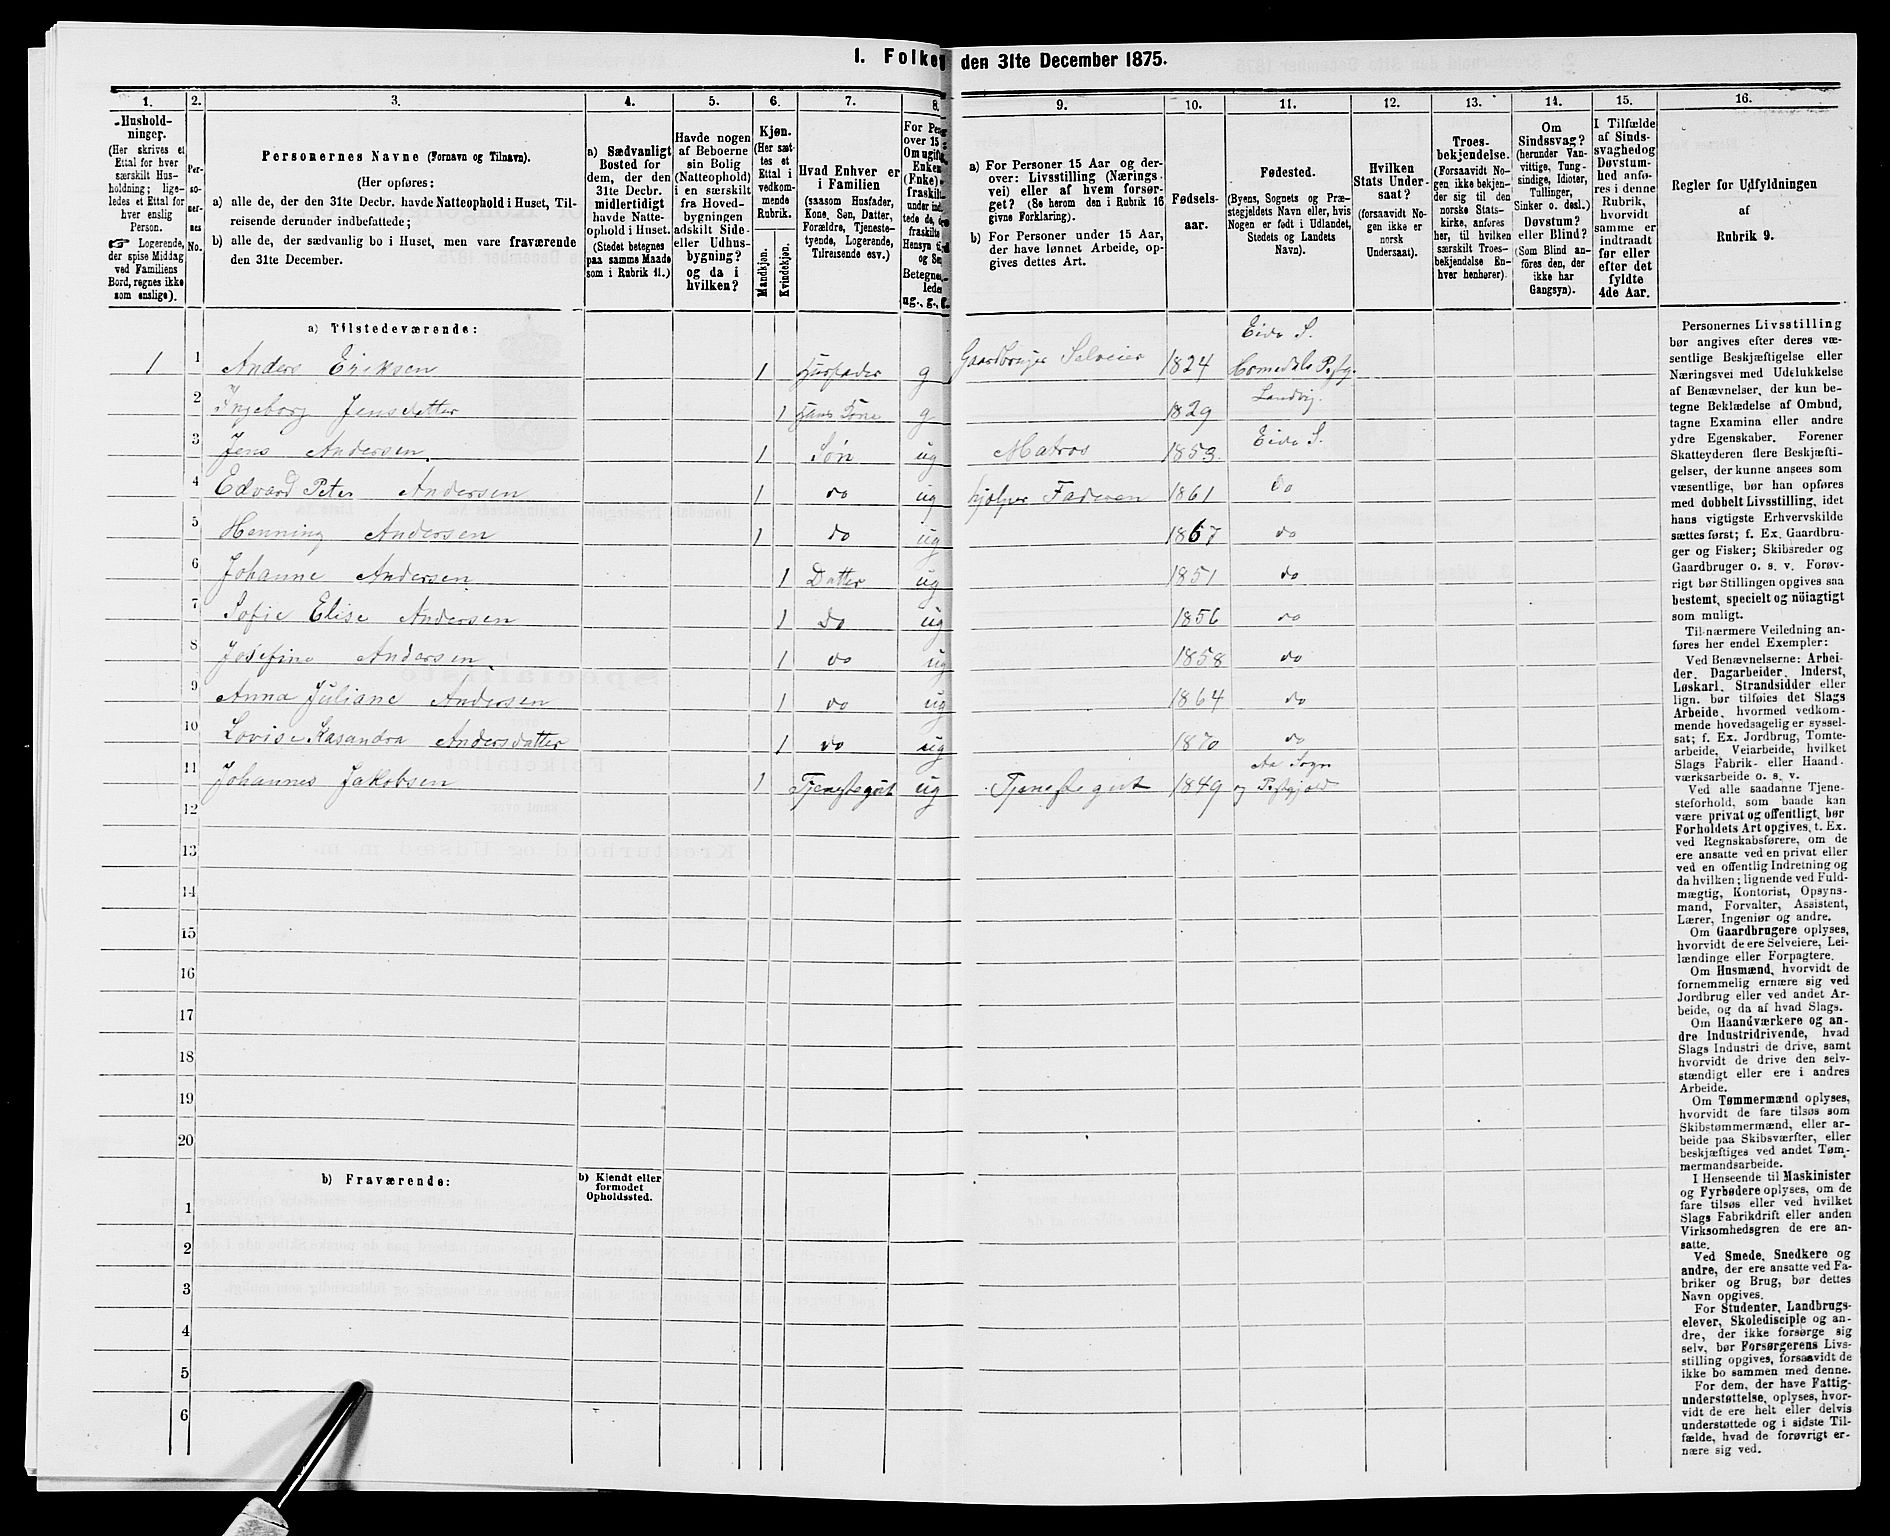 1. Folke den 31te December 1875.
1. 2. 3. 4. 5. 6. 7. 8. 9. 10. 11. 12. 13. 14. 15. 16.
Hushold-
ninger.
(Her skrives et
Ettal for hver
særskilt Hus-
holdning; lige-
ledes et Ettal for
hver enslig
Person.
☞ Logerende,
der spise Middag
ved Familiens
Bord, regnes ikke
som enslige).
Per-
so-
ner-
nes
No.
Personernes Navne (Fornavn og Tilnavn).
(Her opføres:
a) alle de, der den 31te Decbr. havde Natteophold i Huset, Til-
reisende derunder indbefattede;
b) alle de, der sædvanlig bo i Huset, men vare fraværende
den 31te December.
a) Sædvanligt
Bosted for
dem, der den
31te Decbr.
midlertidigt
havde Natte-
ophold i Huset.
(Stedet betegnes
paa samme Maade
som i Rubrik 11.)
Havde nogen
af Beboerne
sin Bolig
(Natteophold)
i en særskilt
fra Hoved-
bygningen
adskilt Side-
eller Udhus-
bygning?
og da i
hvilken?
Kjøn.
(Her sæt-
tes et
Ettal i
vedkom-
mende
Rubrik.
Mandkjøn.
Kvindekjøn.
Hvad Enhver er
i Familien
(saasom Husfader,
Kone, Søn, Datter,
Forældre, Tjeneste-
tyende, Logerende,
Tilreisende osv.)
For Pers
over 15
Om ugift,
Enken
(Enke)
fraskilt
under ind
tede de,
fraskilte
Hensyn ti
og Se
Betegne
lede
ug., g.,
a) For Personer 15 Aar og der-
over: Livsstilling (Nærings-
vei) eller af hvem forsør-
get? (Se herom den i Rubrik 16
givne Forklaring).
b) For Personer under 15 Aar,
der have lønnet Arbeide, op-
gives dettes Art.
Fødsels-
aar.
Fødested.
(Byens, Sognets og Præ-
stegjeldets Navn eller, hvis
Nogen er født i Udlandet,
Stedets og Landets
Navn).
Hvilken
Stats Under-
saat?
(forsaavidt No-
gen ikke er
norsk
Undersaat).
Troes-
bekjendelse.
(Forsaavidt No-
gen ikke bekjen-
der sig til den
norske Stats-
kirke, anføres
her, til hvilken
særskilt Troes-
bekjendelse En-
hver henhører).
Om
Sindssvag?
(herunder Van-
vittige, Tung-
sindige, Idioter,
Tullinger,
Sinker o. desl.)
Døvstum?
eller Blind?
(Som Blind an-
føres den, der
ikke har
Gangsyn).
I Tilfælde
af Sinds-
svaghed og
Døvstum-
hed anfø-
res i denne
Rubrik,
hvorvidt
samme er
indtraadt
før eller
efter det
fyldte
4de Aar.
Regler for Udfyldningen
af
Rubrik 9.
a) Tilstedeværende:
1 1 Anders Eriksen 1 Husfader g Gaardbruger Selveier 1824 Eide S. Homedals Pstgj.
2 Ingeborg Jensdatter 1 Hans Kone g 1829 Landvig.
3 Jens Andersen 1 Søn ug Matros 1853. Eide S.
4 Edvard Peter Andersen 1 do ug hjelper Faderen 1861 do
5 Henning Andersen 1 do ug 1867 do
6 Johanne Andersen 1 Datter ug 1851 do
7 Sofie Elise Andersen 1 do ug 1856 do
8 Josefine Andersen 1 do ug 1858 do
9 Anna Juliane Andersen 1 do ug 1864 do
10 Lovise Kasandra Andersdatter 1 do ug 1870 do
11 Johannes Jakobsen 1 Tjenestegut ug Tjenestegut 1849 Aa Sogn og Pstgjeld
12
13
14
15
16
17
18
19
20
b) Fraværende:
b) Kjendt eller
formodet
Opholdssted.
1
2
3
4
5
6
Personernes Livsstilling
bør angives efter deres væ-
sentlige Beskjæftigelse eller
Næringsvei med Udelukkelse
af Benævnelser, der kun be-
tegne Beklædelse af Ombud,
tagne Examina eller andre
ydre Egenskaber. Forener
Skatteyderen flere Beskjæfti-
gelser, der kunne ansees som
væsentlige, bør han opføres
med dobbelt Livsstilling, idet
hans vigtigste Erhvervskilde
sættes først; f. Ex. Gaardbru-
ger og Fisker; Skibsreder og
Gaardbruger o. s. v. Forøv-
rigt bør Stillingen opgives saa
bestemt, specielt og nöiagtigt
som muligt.
Til nærmere Veiledning an-
føres her endel Exempler:
Ved Benævnelserne: Arbei-
der, Dagarbeider, Inderst,
Løskarl, Strandsidder eller
lign. bør tilføies det Slags
Arbeide, hvormed vedkom-
mende hovedsagelig er syssel-
sat; f. Ex. Jordbrug, Tomte-
arbeide, Veiarbeide, hvilket
Slags Fabrik- eller Haand-
værksarbeide o. s. v.
Ved alle saadanne Tjene-
steforhold, som baade kan
være privat og offentligt, bør
Forholdets Art opgives, t. Ex.
ved Regnskabsførere, om de
ere ansatte ved en privat eller
ved en offentlig Indretning og
da hvilken; lignende ved Fuld-
mægtig, Kontorist, Opsyns-
mand, Forvalter, Assistent,
Lærer, Ingeniør og andre.
Om Gaardbrugere oplyses,
hvorvidt de ere Selveiere, Lei-
lændinge eller Forpagtere.
Om Husmænd, hvorvidt de
fornemmelig ernære sig ved
Jordbrug eller ved andet Ar-
beide, og da af hvad Slags.
Om Haandværkere og an-
dre Industridrivende, hvad
Slags Industri de drive, samt
hvorvidt de drive den selv-
stændigt eller ere i andres
Arbeide.
Om Tømmermænd oplyses,
hvorvidt de fare tilsøs som
Skibstømmermænd, eller ar-
beide paa Skibsværfter, eller
beskjæftiges ved andet Tøm-
mermandsarbeide.
I Henseende til Maskinister
og Fyrbødere oplyses, om de
fare tilsøs eller ved hvilket
Slags Fabrikdrift eller anden
Virksomhedsgren de ere an-
satte.
Ved Smede, Snedkere og
andre, der ere ansatte ved Fa-
briker og Brug, bør dettes
Navn opgives.
For Studenter, Landbrugs-
elever, Skoledisciple og an-
dre, der ikke forsørge sig
selv, bør Forsørgerens Livs-
stilling opgives, forsaavidt de
ikke bo sammen med denne.
For dem, der have Fattig-
understøttelse, oplyses, hvor-
vidt de ere helt eller delvis
understøttede og i sidste Til-
fælde, hvad de forøvrigt er-
nære sig ved.